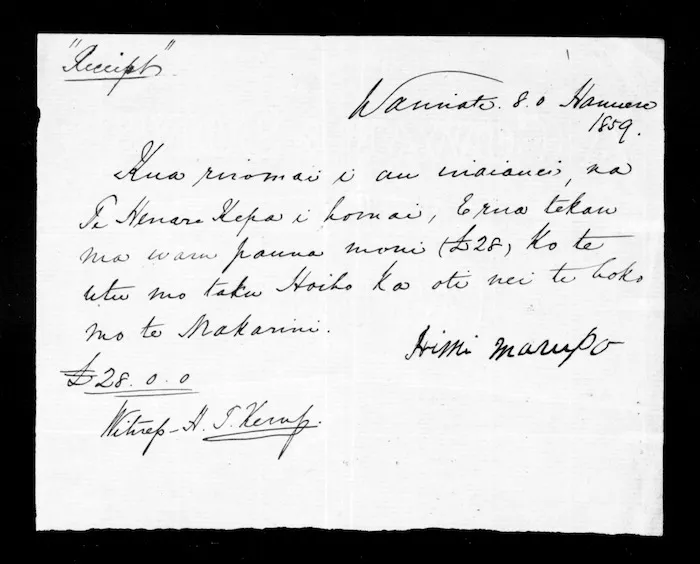 "Receipt"
Waimate. 8. o Hanuere
1859.
Kua riromai i au inaianei, na
Te Henare Kepa i homai, E rua tekau
ma waru pauna moni (£28) Ko te
utu mo taku Hoiho Ka oti nei te hoko
mo te Makarini.
Himi Marupo
£28. 0. 0
Witness - H. T. Kemp.